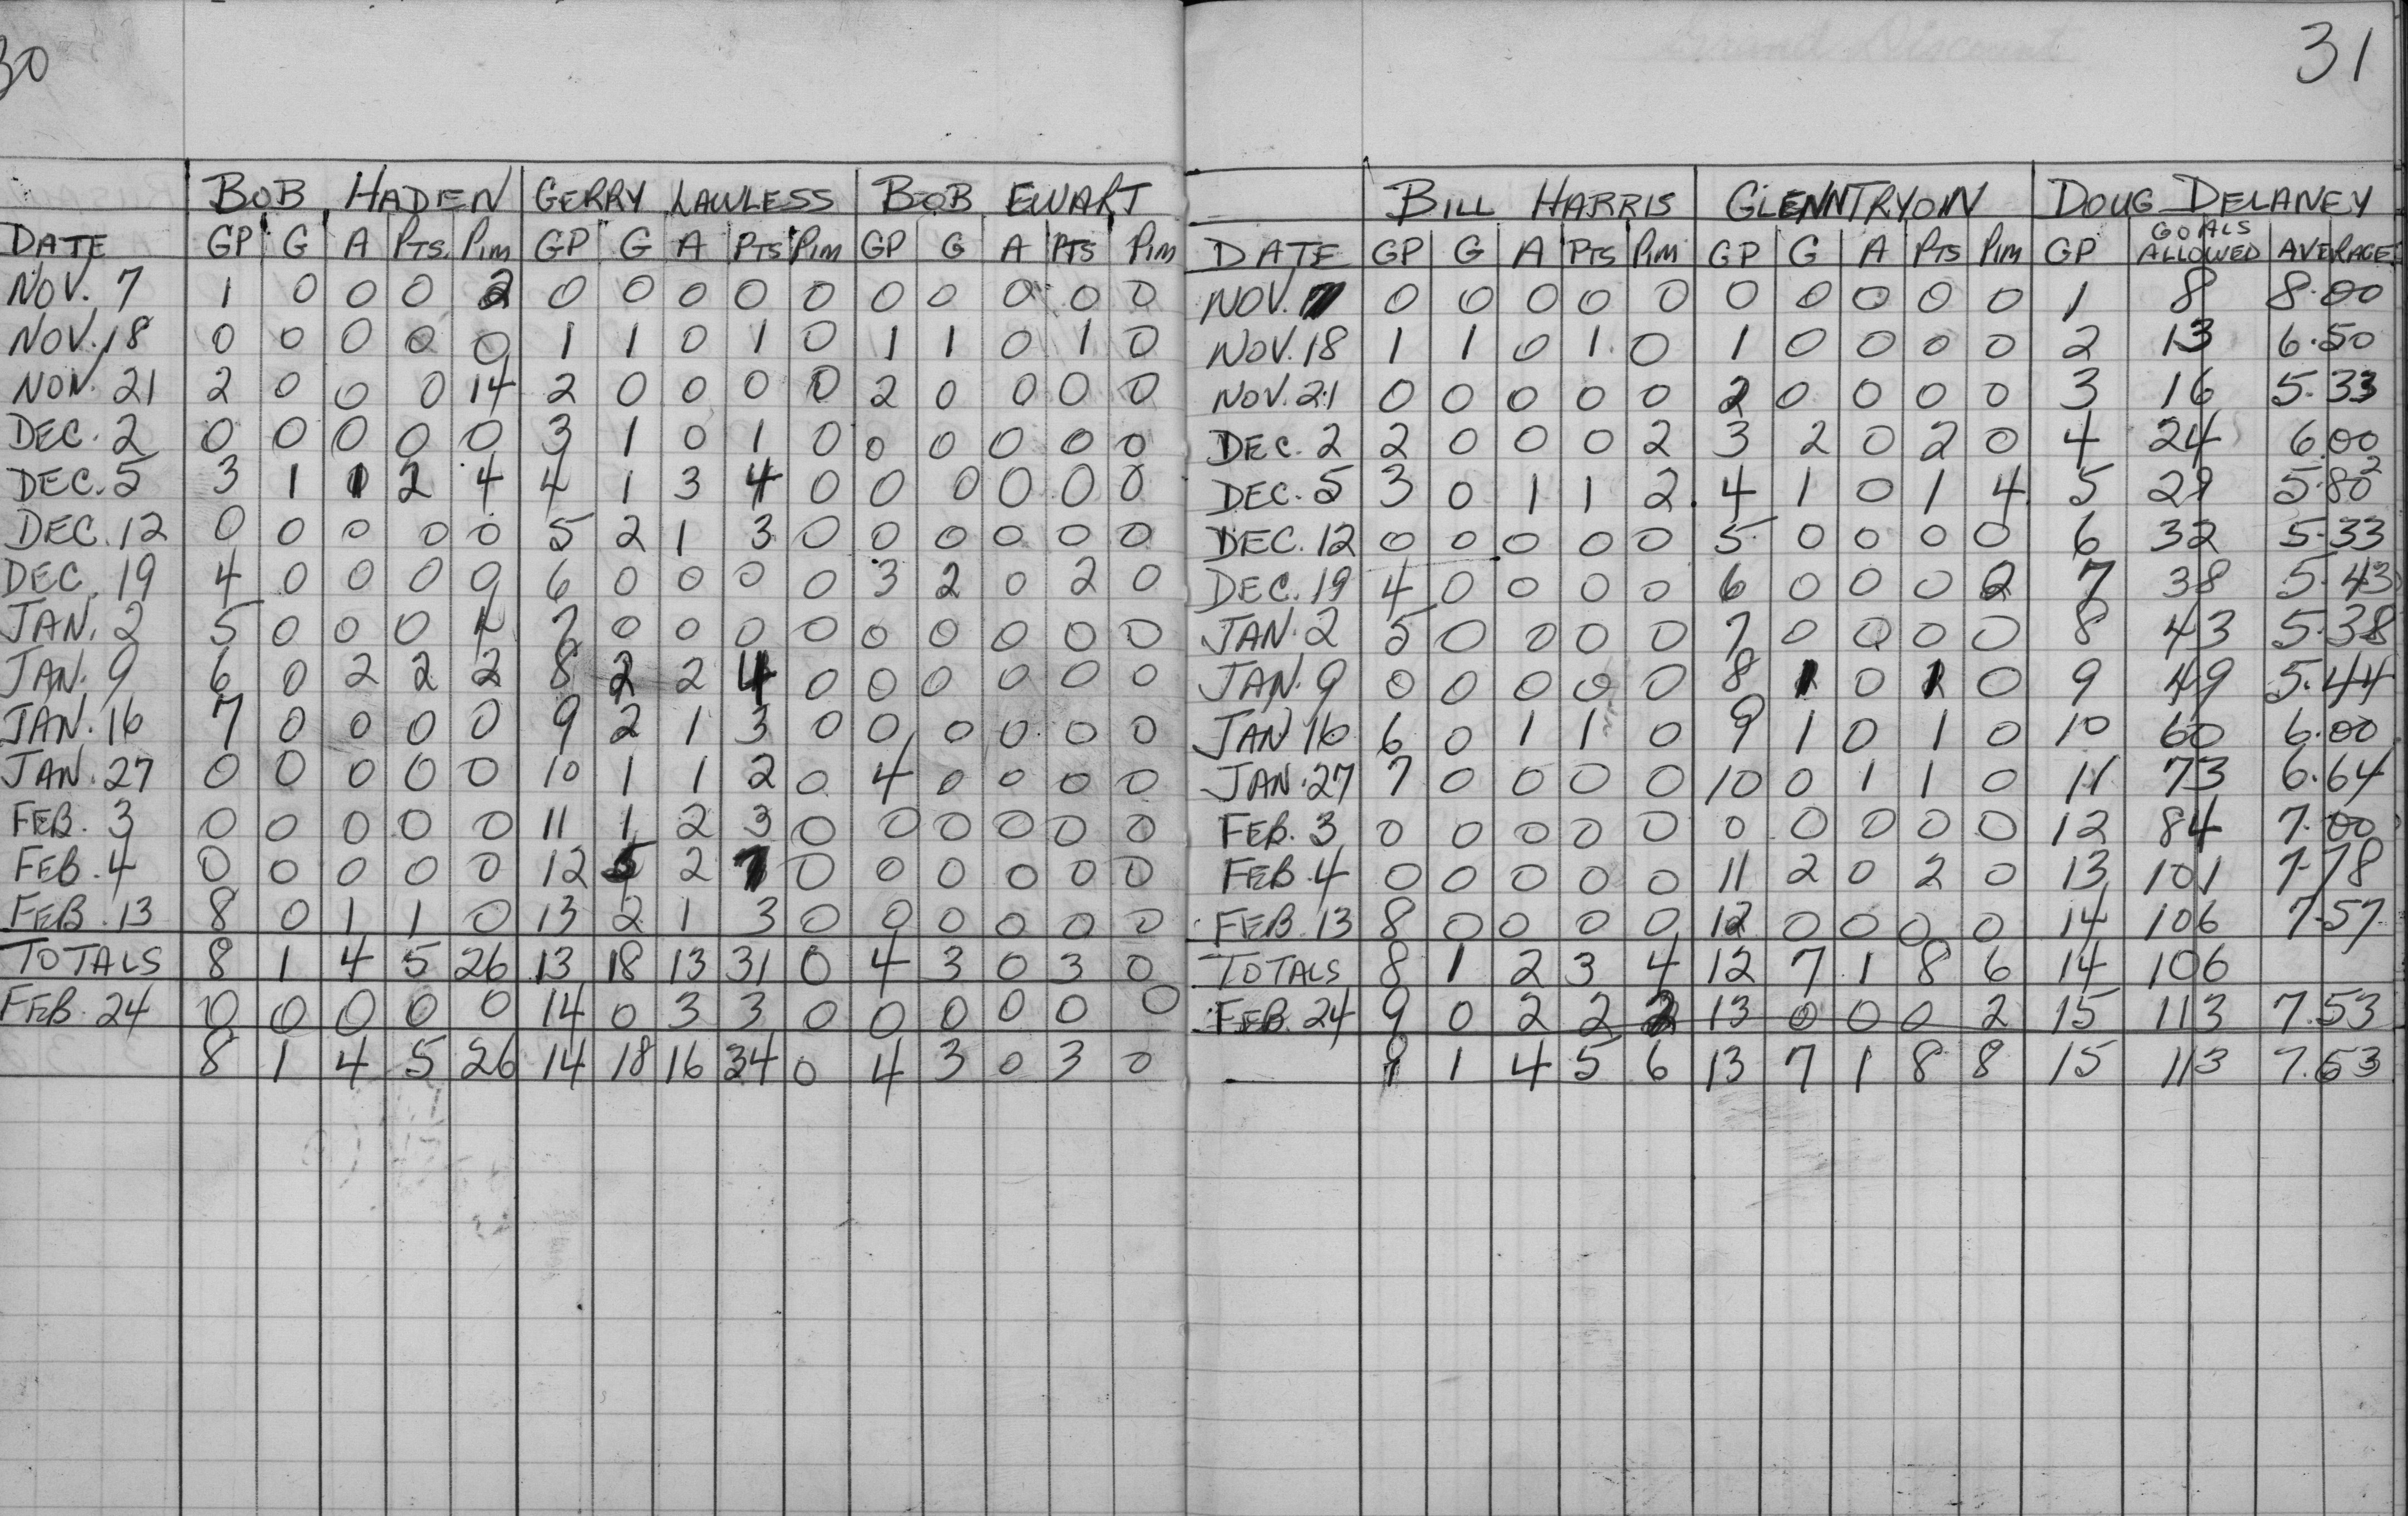 30
BOB HADEN GERRY LAWLESS BOB EWART
DATE GP G A PTS. PIM GP G A PTS PIM GP G A PTS PIM
NOV. 7 1 0 0 0 2 0 0 0 0 0 0 0 0 0 0
NOV. 18 0 0 0 0 0 1 1 0 1 0 1 1 0 1 0
NOV. 21 2 0 0 0 14 2 0 0 0 0 2 0 0 0 0
DEC. 2 0 0 0 0 0 3 1 0 1 0 0 0 0 0 0
DEC. 5 3 1 1 2 4 4 1 3 4 0 0 0 0 0 0
DEC. 12 0 0 0 0 0 5 2 1 3 0 0 0 0 0 0
DEC. 19 4 0 0 0 0 6 0 0 0 0 3 2 0 2 0
JAN. 2 5 0 0 0 4 7 0 0 0 0 0 0 0 0 0
JAN. 9 6 0 2 2 2 8 2 2 4 0 0 0 0 0 0
JAN. 16 7 0 0 0 0 9 2 1 3 0 0 0 0 0 0
JAN. 27 0 0 0 0 0 10 1 1 2 0 4 0 0 0 0
FEB. 3 0 0 0 0 0 11 1 2 3 0 0 0 0 0 0
FEB. 4 0 0 0 0 0 12 5 2 7 0 0 0 0 0 0
FEB. 13 8 0 1 1 0 13 2 1 3 0 0 0 0 0 0
TOTALS 8 1 4 5 26 13 18 13 31 0 4 3 0 3 0
FEB. 24 0 0 0 0 0 14 0 3 3 0 0 0 0 0 0
8 1 4 5 26 14 18 16 34 0 4 3 0 3 0
31
BILL HARRIS GLENN TRYON DOUG DELANEY
DATE GP G A PTS PIM GP G A PTS PIM GP GOALS ALLOWED AVERAGE
NOV. 7 0 0 0 0 0 0 0 0 0 0 1 8 8.00
NOV. 18 1 1 0 1 0 1 0 0 0 0 2 13 6.50
NOV. 21 0 0 0 0 0 2 0 0 0 0 3 16 5.33
DEC. 2 2 0 0 0 2 3 2 0 2 0 4 24 6.00
DEC. 5 3 0 1 1 2 4 1 0 1 4 5 29 5.80
DEC. 12 0 0 0 0 0 5 0 0 0 0 6 32 5.33
DEC. 19 4 0 0 0 0 6 0 0 0 2 7 38 5.43
JAN. 2 5 0 0 0 0 7 0 0 0 0 8 43 5.38
JAN. 9 0 0 0 0 0 8 1 0 1 0 9 49 5.44
JAN 16 6 0 1 1 0 9 1 0 1 0 10 60 6.00
JAN. 27 7 0 0 0 0 10 0 1 1 0 11 73 6.64
FEB. 3 0 0 0 0 0 0 0 0 0 0 12 84 7.00
FEB. 4 0 0 0 0 0 11 2 0 2 0 13 101 7.78
FEB. 13 8 0 0 0 0 12 0 0 0 0 14 106 7.57
TOTALS 8 1 2 3 4 12 7 1 8 6 14 106
FEB. 24 9 0 2 2 2 13 0 0 0 2 15 113 7.53
9 1 4 5 6 13 7 1 8 8 15 113 7.53